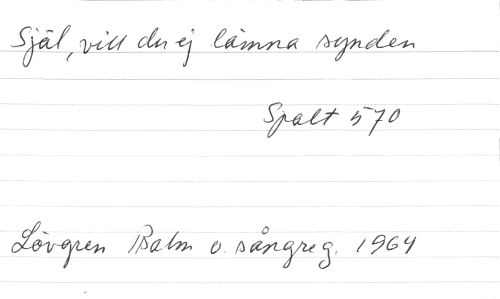 Själ, vill du ej lämna synden
Spalt 570
Lövgren Psalm o. sångreg. 1964